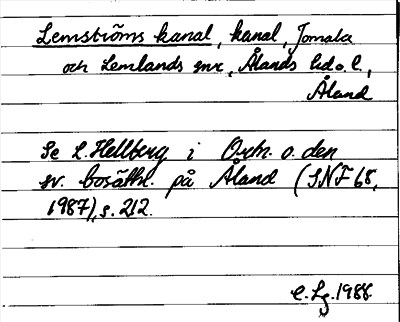 Lemströms kanal, kanal, Jomala
och Lemlands snr, Ålands hd o. l.,
Åland
Se L. Hellberg i Ortn. o. den
sv. bosättn. på Åland (SNF 68,
1987), s. 212.
C. Lg. 1988